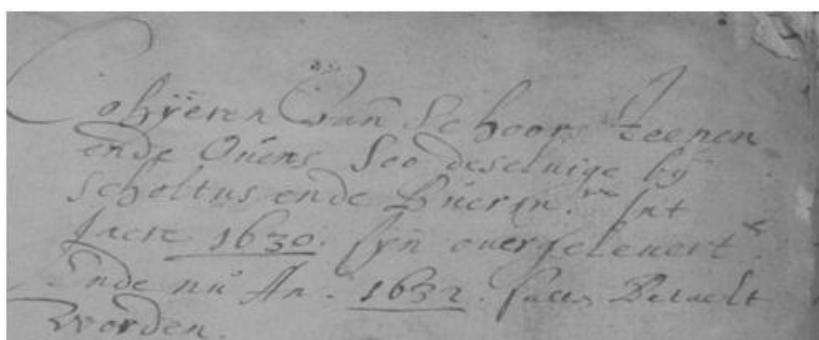 Cohÿeren Van Schoors teenen
ende Ouens Soo deseluige bÿ
Scholtus ende Bueren. Int
Jaere 1630. sÿn ouergeleuert.
Ende nu An. 1632. Betaelt
worden.